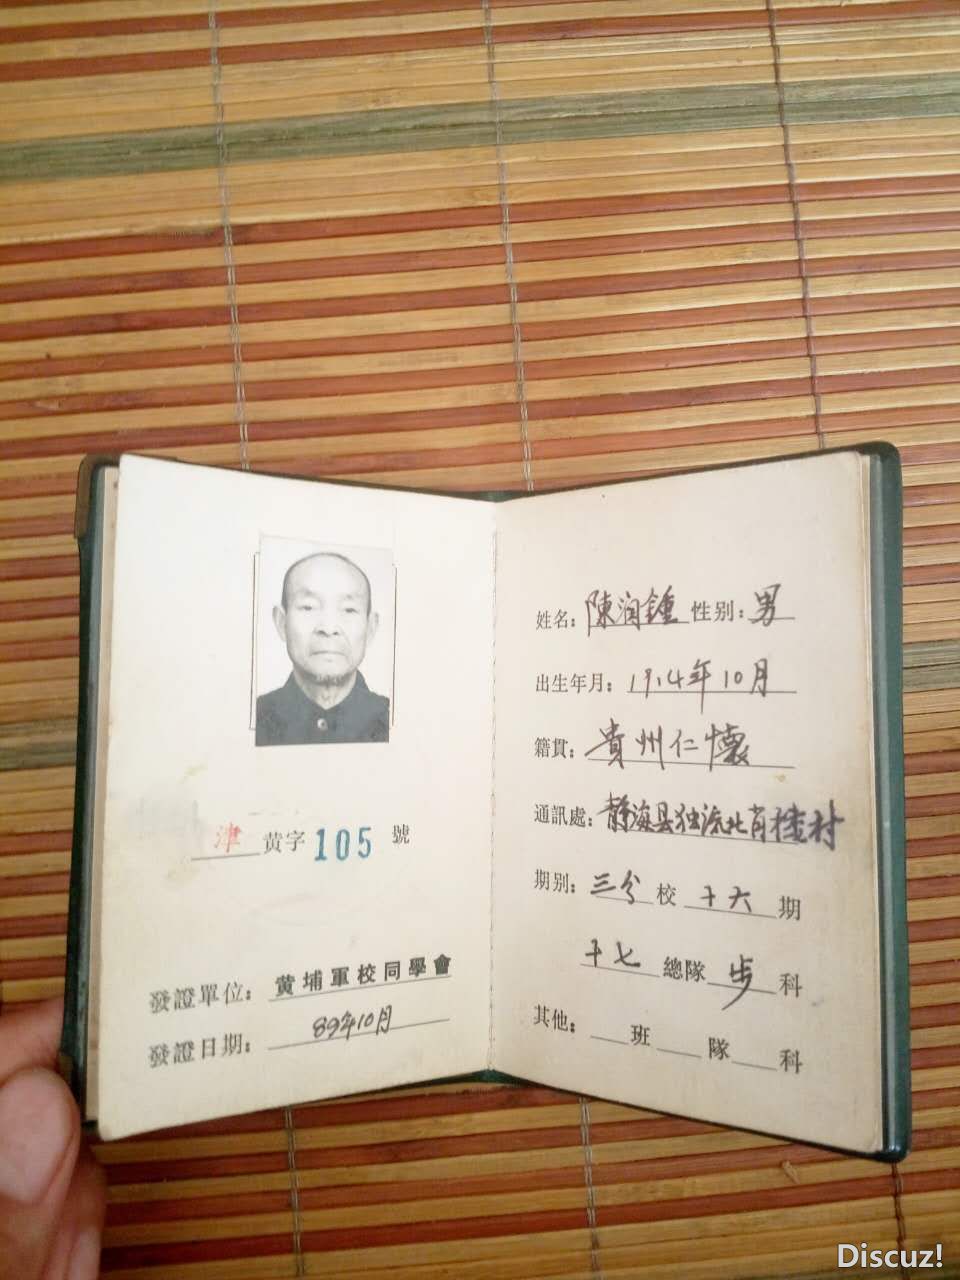 津 黄字 105 號
發證單位： 黄埔軍校同學會
發證日期： 89年10月
姓名： 陳润鍾 性别： 男
出生年月： 1914年10月
籍貫： 貴州仁懷
通訊處： 静海县独流北肖楼村
期别： 三分 校 十六 期
十七 總隊 步 科
其他： 班 隊 科
Discuz!